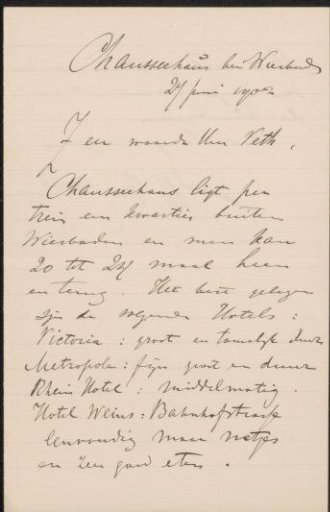 Chausseehaus bei Wiesbaden
27 juni 1902
Zeer waarde Heer Veth,
Chausseehaus ligt per
trein een kwartier buiten
Wiesbaden en men kan
20 tot 24 maal heen
en terug. Het best gelegen
zijn de volgende Hotels:
Victoria: groot en tamelijk duur
Metropole: fijn groot en duur
Rhein Hotel: middelmatig.
Hotel Weins: Bahnhofstrasse
Eenvoudig maar netjes
en zeer goed eten.